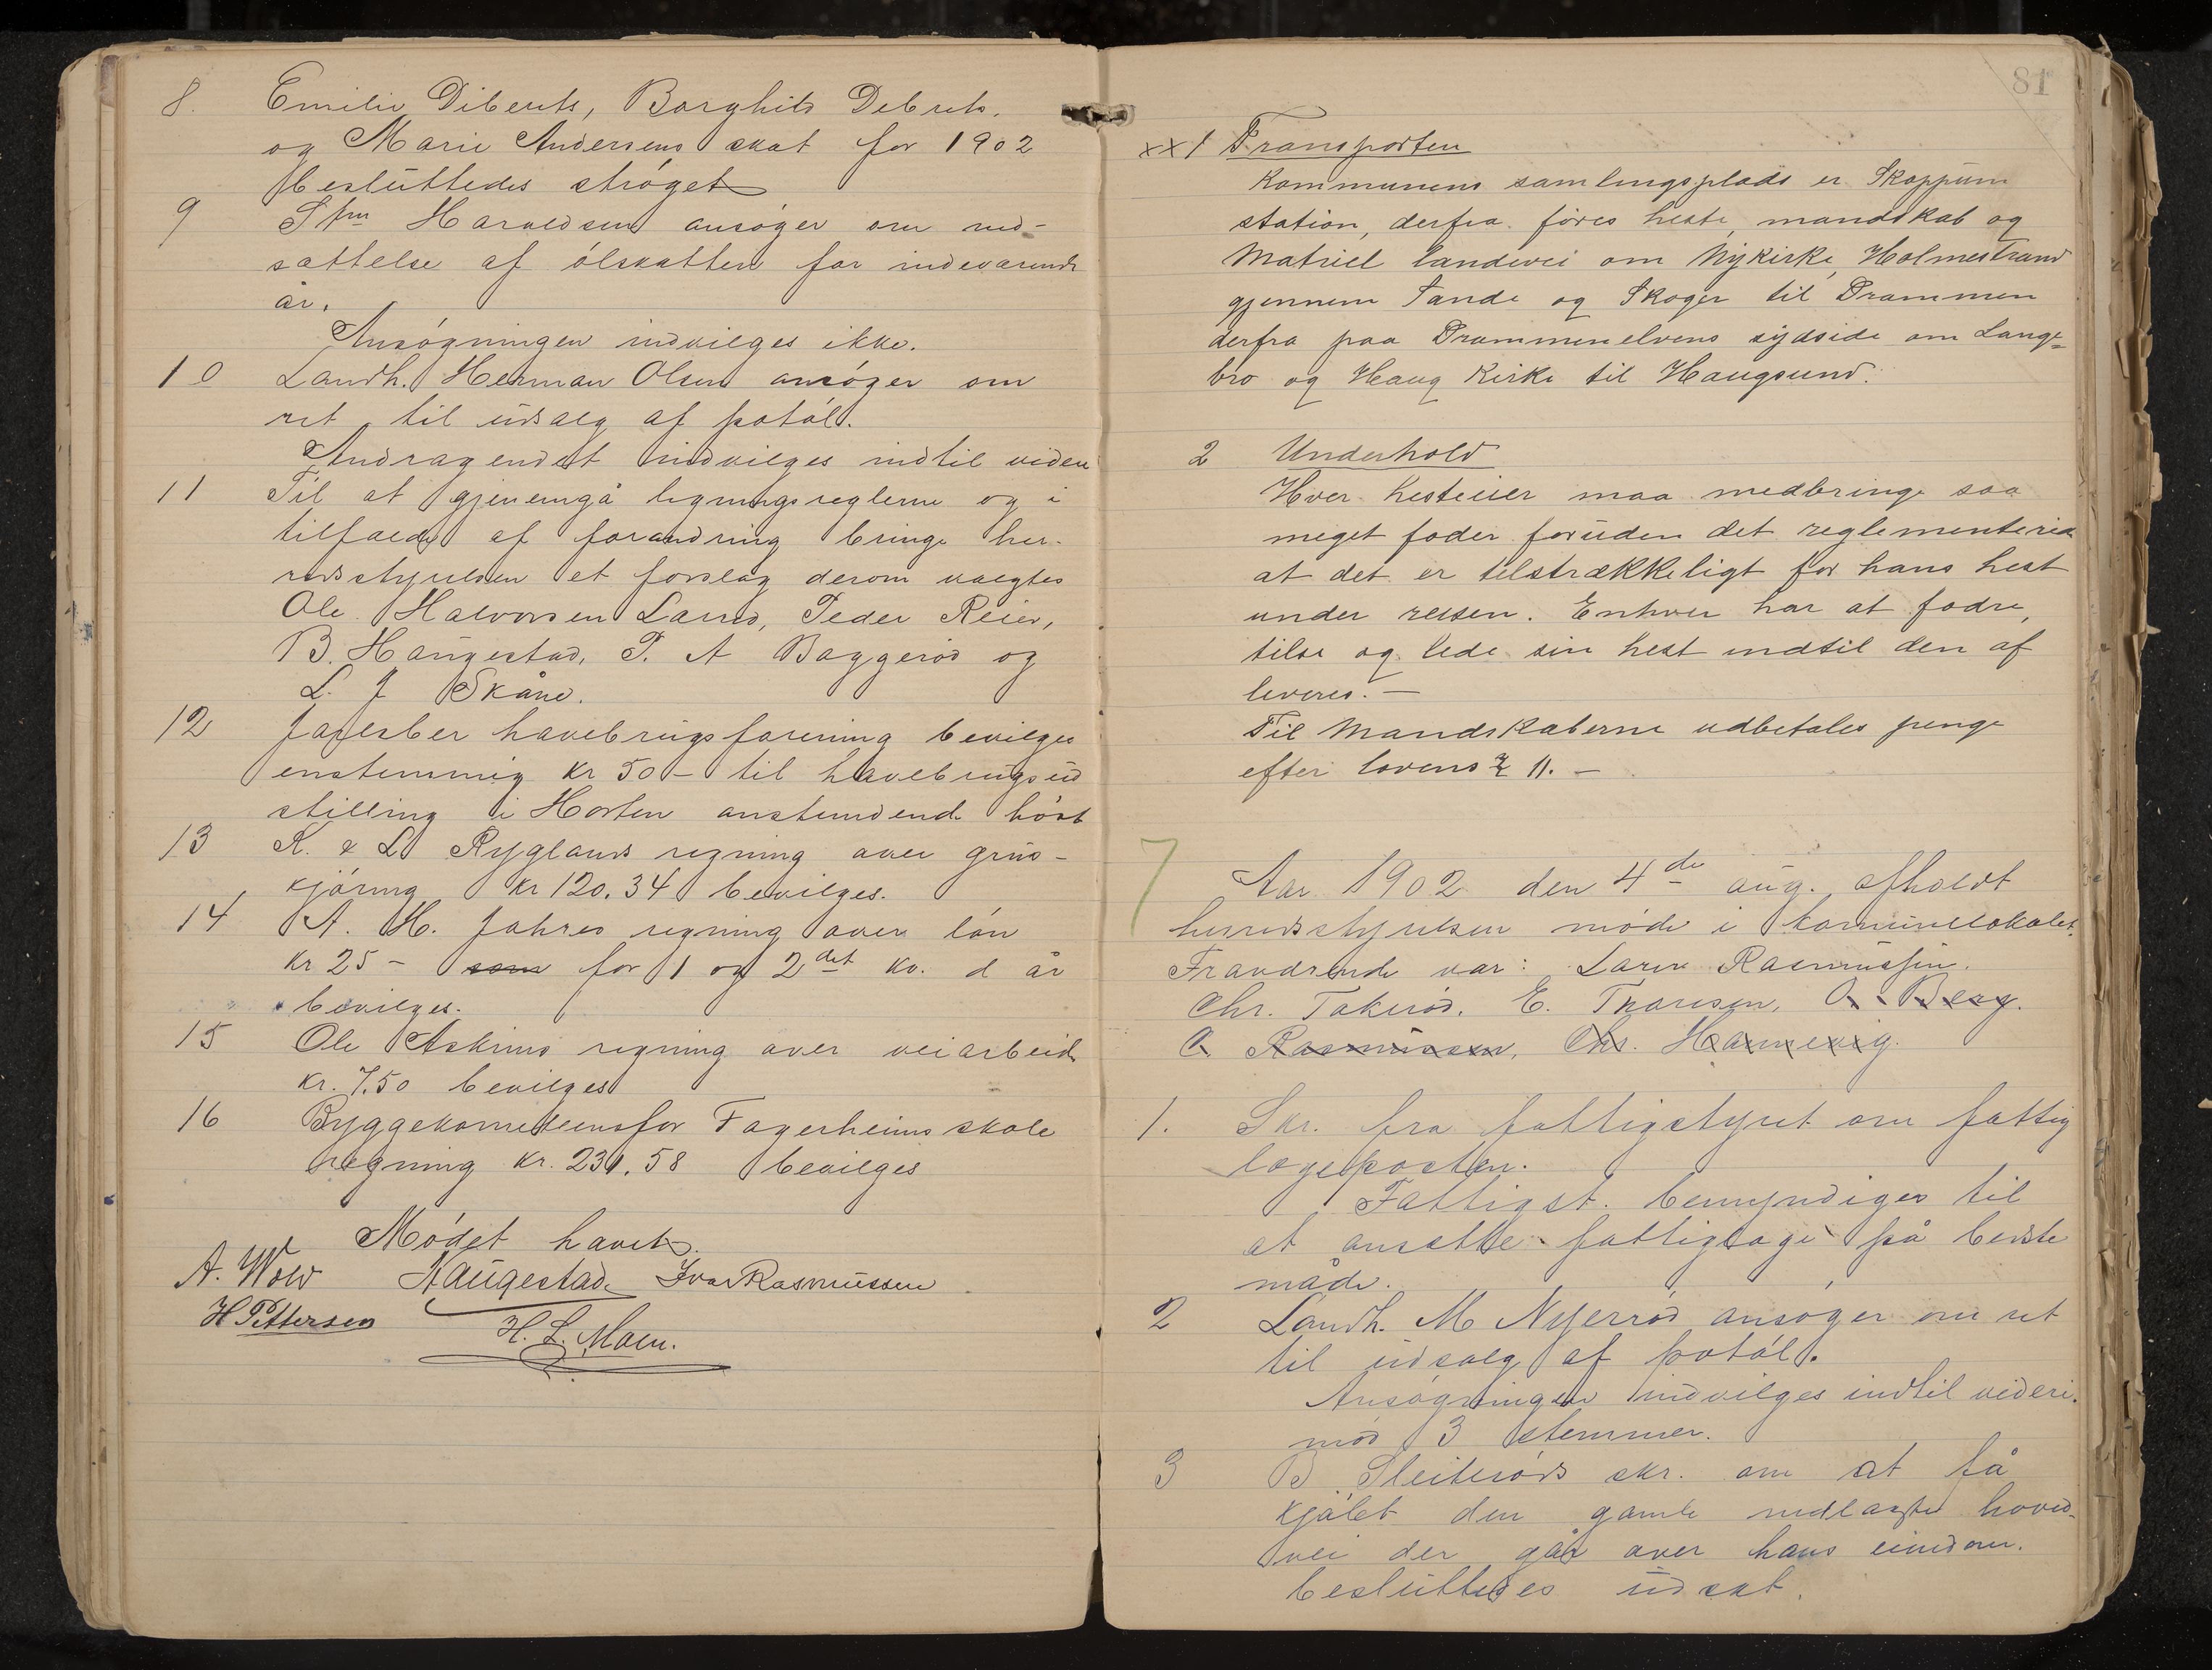 8. Emilie Diberts, Borghild Debrets.
og Marie Andersens skat for 1902
besluttedes strøget
9 Stm Haraldsen ansøger om ned-
sættelse af ølskatten for indeværende
år.
Ansøgningen indvilges ikke.
10 Landh. Herman Olsen ansøger om
ret til udsalg af potøl.
Andragendet indvilges indtil videre
11 Til at gjenemgå ligningsreglerne og i
tilfælde af forandring bringe her-
redsstyrelsen et forslag derom valgtes
Ole Halvorsen Sand, Peder Reier,
B. Haugestad, P. A Baggerød og
L. J Skåne.
12 Jarlsber havebrugsforening bevilges
enstemmig kr 50 - til havebrugsud
stilling i Horten anstundende høst
13 K. & L Ryglands regning over grus-
kjøring kr 120.34 bevilges.
14 A. H. Jahres regning over løn
kr 25 - som for 1 og 2det kv. d år
bevilges.
15 Ole Askims regning over veiarbeide
kr. 7.50 bevilges
16 Byggekomiteens for Fagerheims skole
regning kr. 231.58 bevilges
Mødet hævet.
A. Wold Haugestad Ivar Rasmussen
H Pettersen H. L. Moen.
81
xx1 Transporten
Kommunens samlingsplads er Skoppum
station, derfra føres heste, mandskab og
Matriel landevei om Nykirke, Holmestrand
gjennem Sande og Skoger til Drammen
derfra paa Drammenelvens sydside om Lange=
bro og Haug Kirke til Haugsund.
2 Underhold
Hver hesteeier maa medbringe saa
meget foder foruden det reglementerede
at det er tilstrækkeligt for hans hest
under reisen. Enhver har at fodre,
tilse og lede sin hest indtil den af
leveres. —
Til Mandskaberne udbetales penge
efter lovens § 11. —
7
Aar 1902 den 4de aug. afholdt
herredsstyrelsen møde i kommunelokalet.
Fraværende var: Laren Rasmussen.
Chr. Takerød. E. Thoresen, O. Berg.
O Rasmussen, Chr. Hannevig.
1. Skr. fra fattigstyret om fattig
lægeposten.
Fattigst. bemyndiges til
at ansætte fattiglæge på bedste
måde.
2 Landh. M Nyerrød ansøger om ret
til udsalg af potøl.
Ansøgningen indvilges indtil videre.
mod 3 stemmer.
3 B Sleiterøds skr. om at få
kjøbt den gamle nedlagte hoved-
vei der går over hans eiendom.
besluttedes udsat.